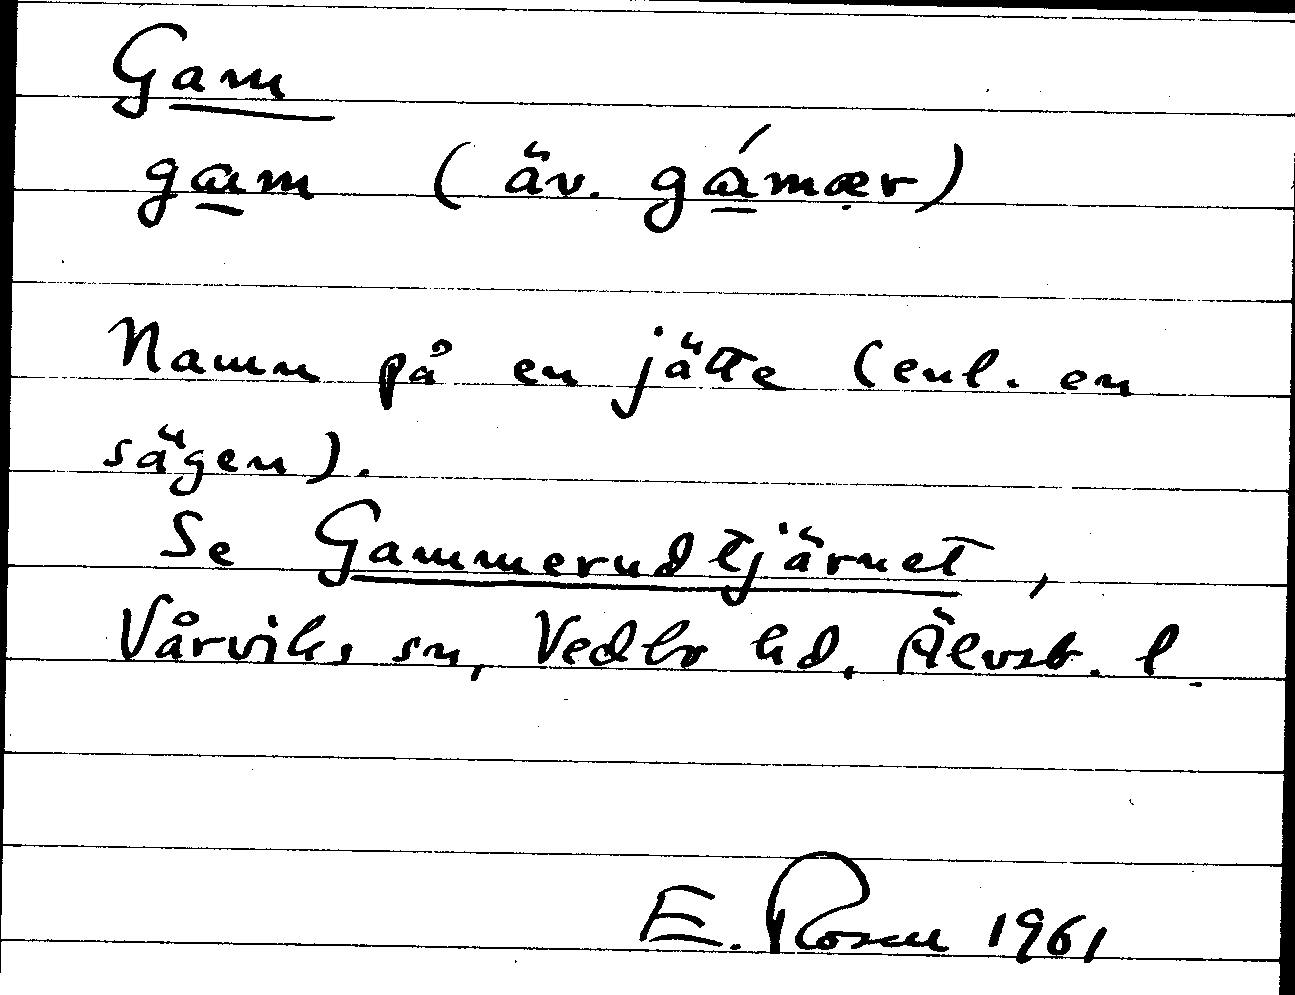 Gam
gam (äv. gámær)
Namn på en jätte (enl. en
sägen).
Se Gammerudtjärnet,
Vårviks sn, Vedbo hd, Älvsb. l.
E. Rosen 1961